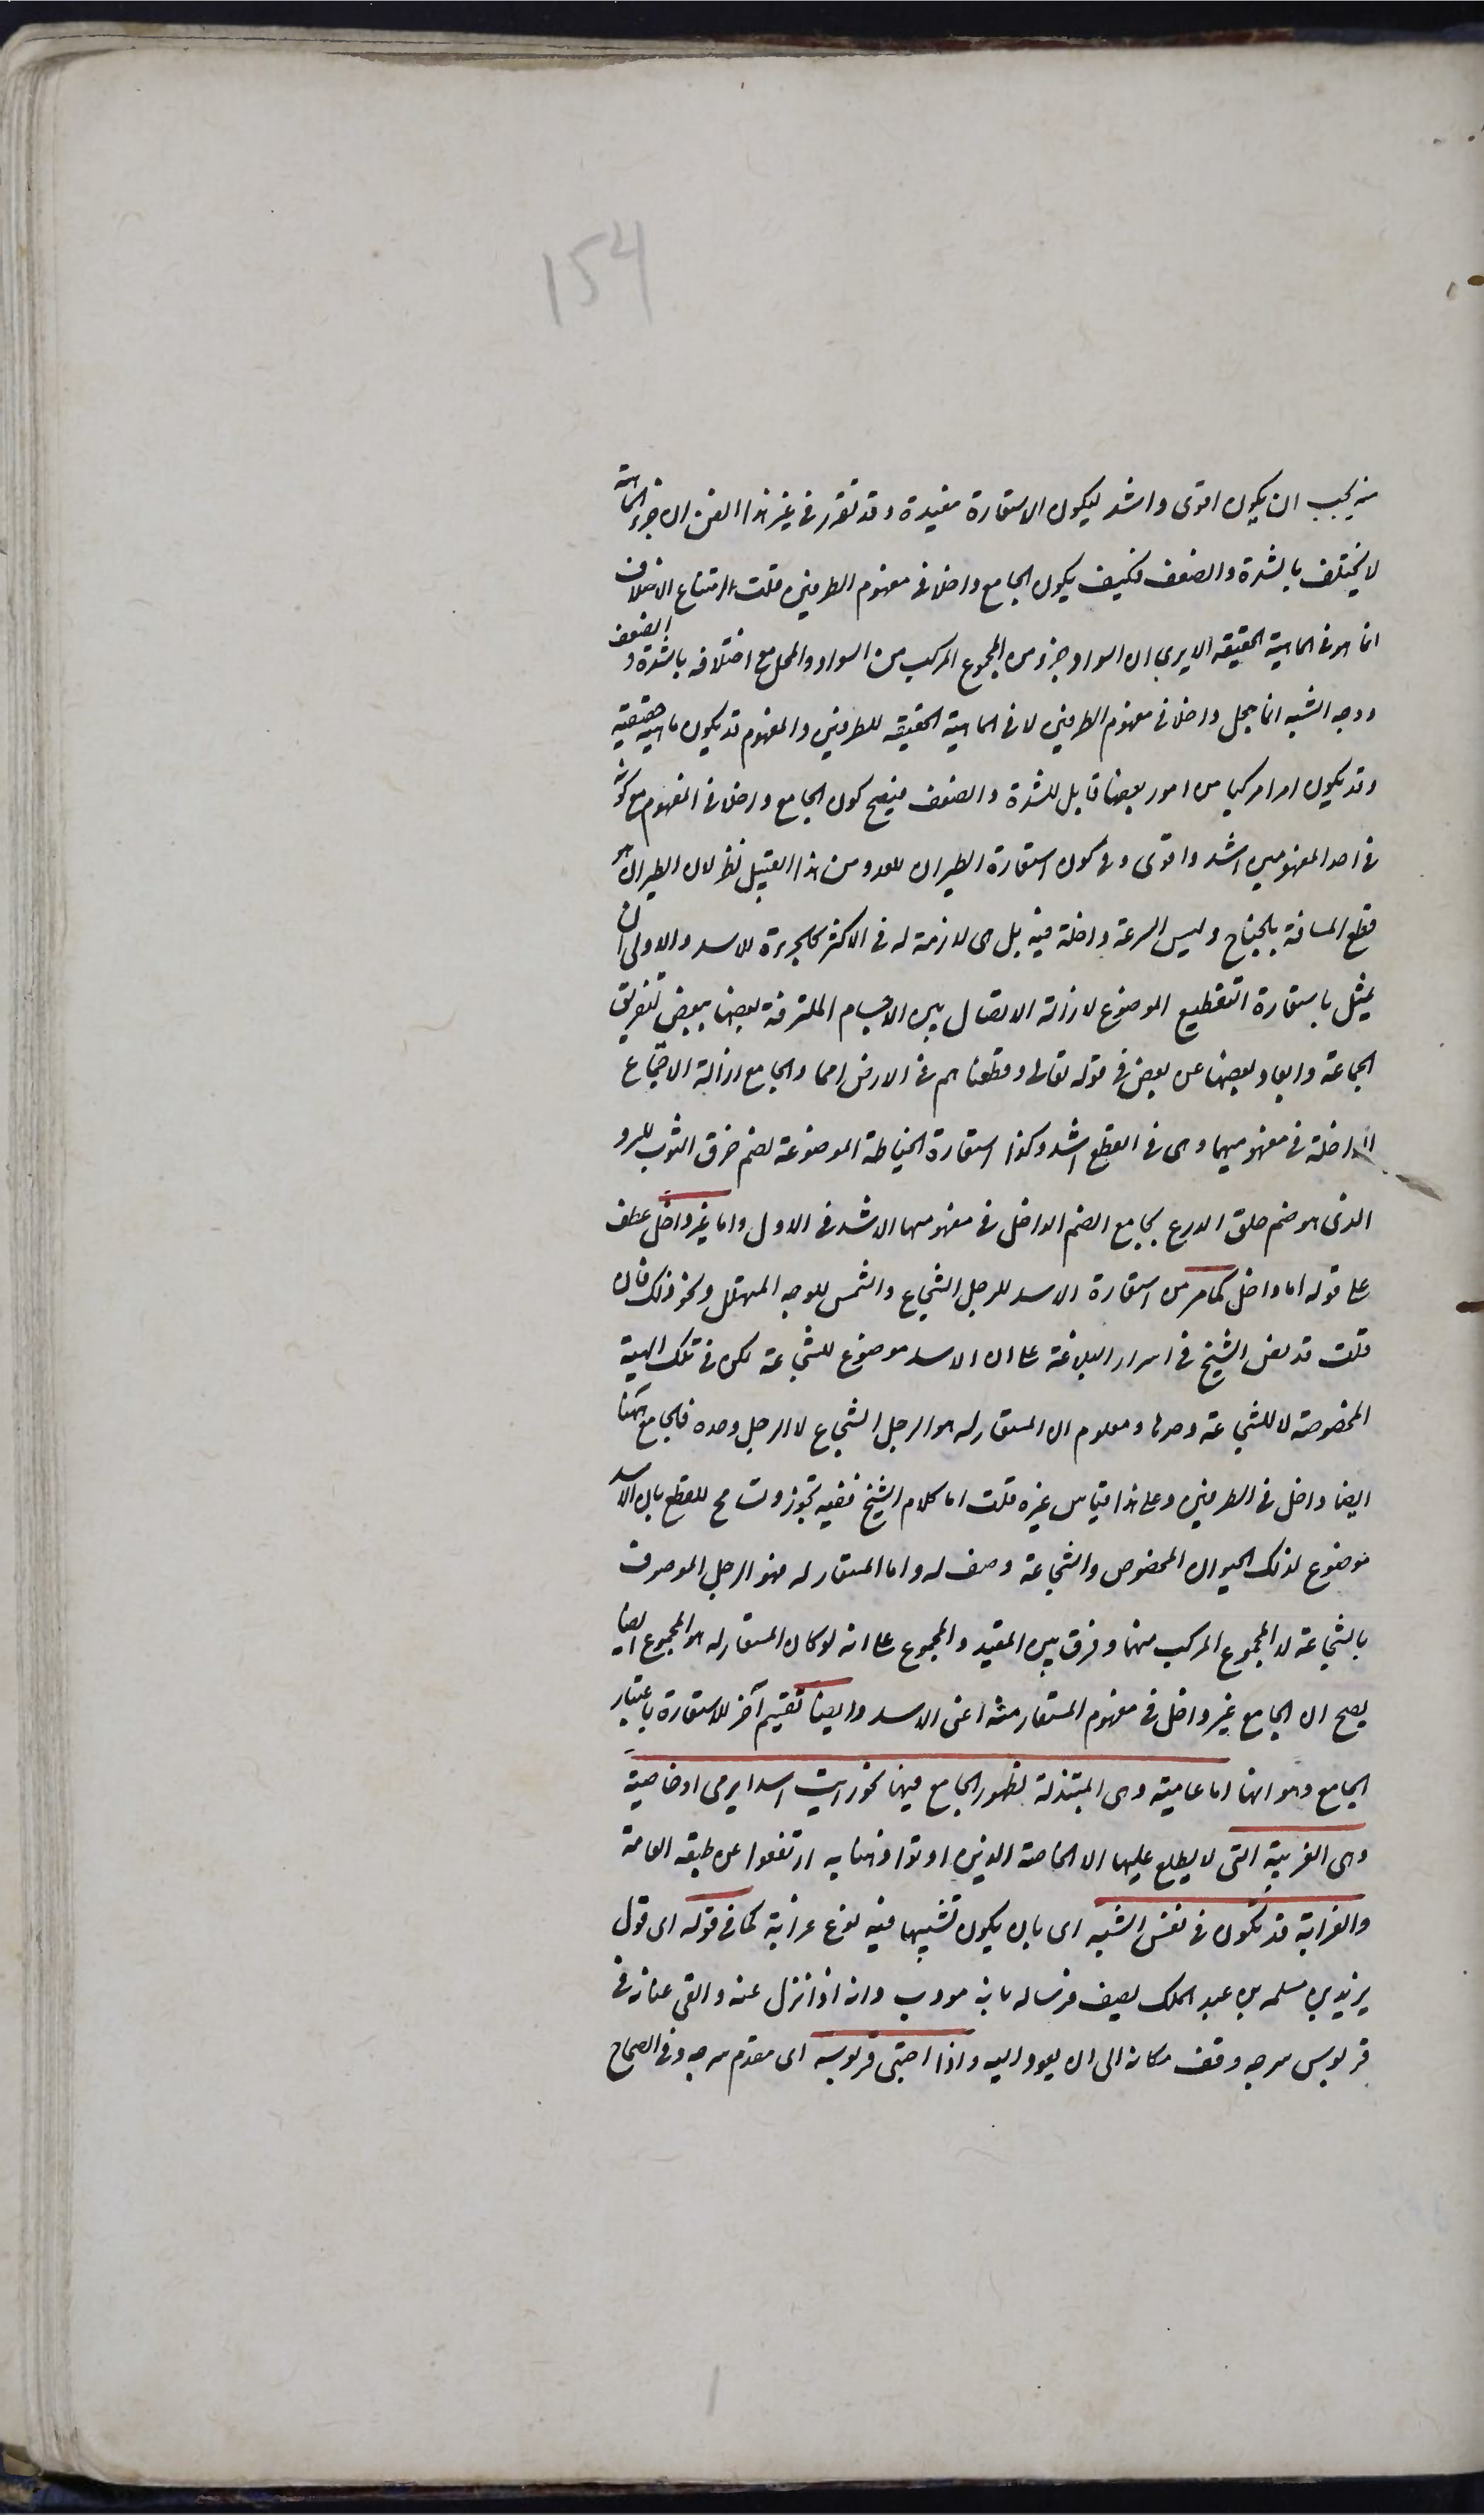 154
منه يجب ان يكون اقوى واشد ليكون الاستعارة مفيدة وقد تقرر فى غير هذا الفن ان جزء الماهية
لا يختلف بالشدة والضعف فكيف يكون الجامع داخلا فى مفهوم الطرفين قلت امتناع الاختلاف
انما هو فى الماهية الحقيقية الا يرى ان السواد جزء من المجموع المركب من السواد والمحل مع اختلافه بالشدة والضعف
ووجه الشبه انما جعل داخلا فى مفهوم الطرفين لا فى الماهية الحقيقية للطرفين والمفهوم قد يكون ماهية حقيقية
وقد يكون امرا مركبا من امور بعضها قابل للشدة والضعف فيصح كون الجامع داخلا فى المفهوم مع كونه
فى احد المفهومين اشد واقوى وفى كون استعارة الطيران للعدو من هذا القبيل نظر لان الطيران هو
قطع المسافة بالجناح وليس السرعة داخلة فيه بل هى لازمة له فى الاكثر كالجرءة للاسد والاولى ان
يمثل باستعارة التقطيع الموضوع لازالة الاتصال بين الاجسام الملتزقة بعضها ببعض لتفريق
الجماعة وابعاد بعضها عن بعض فى قوله تعالى وقطعناهم فى الارض امما والجامع ازالة الاجتماع
الداخلة فى مفهوميهما وهى فى القطع اشد وكذا استعارة الخياطة الموضوعة لضم خرق الثوب للسرد
الذى هو ضم حلق الدرع بجامع الضم الداخل فى مفهومهما الاشد فى الاول واما غير داخل عطف
على قوله اما داخل كما مر من استعارة الاسد للرجل الشجاع والشمس للوجه المتهلل ونحو ذلك فان
قلت قد نص الشيخ فى اسرار البلاغة على ان الاسد موضوع للشجاعة لكن فى تلك الهيئة
المخصوصة لا للشجاعة وحدها ومعلوم ان المستعار له هو الرجل الشجاع لا الرجل وحده فالجامع ههنا
ايضا داخل فى الطرفين وعلى هذا قياس غيره قلت اما كلام الشيخ ففيه تجوز وتسامح للقطع بان الاسد
موضوع لذلك الحيوان المخصوص والشجاعة وصف له واما المستعار له فهو الرجل الموصوف
بالشجاعة لا المجموع المركب منهما وفرق بين المقيد والمجموع على انه لو كان المستعار له هو المجموع ايضا
يصح ان الجامع غير داخل فى مفهوم المستعار منه اعنى الاسد وايضا تقسيم آخر للاستعارة باعتبار
الجامع وهو انها اما عامية وهى المبتذلة لظهور الجامع فيها نحو رايت اسدا يرمى او خاصية
وهى الغريبة التى لا يطلع عليها الا الخاصة الذين اوتوا ذهنا به ارتفعوا عن طبقة العامة
والغرابة قد تكون فى نفس الشبه اى بان يكون تشبيها فيه نوع غرابة كما فى قوله اى قول
يزيد بن مسلمه بن عبد الملك يصف فرسا له بانه مودب وانه اذا نزل عنه والقى عنانه فى
قربوس سرجه وقف مكانه الى ان يعود اليه واذا احتبى قربوسه اى مقدم سرجه وفى الصحاح